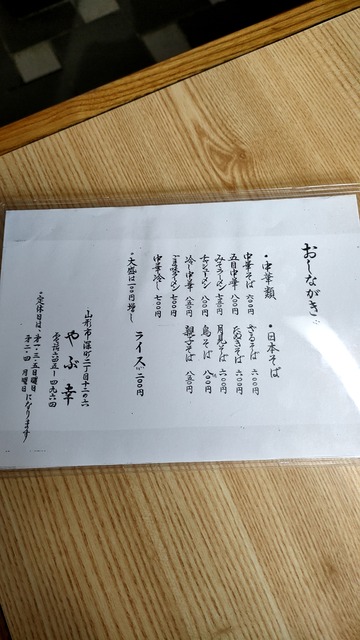 おしながき
・中華類
中華そば 六〇〇
五目中華 八〇〇
みそラーメン
チャシューメン 八〇〇
冷し中華 八〇〇
ラーメン 七〇〇
中華冷し 七〇〇
・大盛は一〇〇円増し
・日本そば
ざるそば 六〇〇
たぬきそば 六〇〇
月見そば 六〇〇
鳥そば 八〇〇
親子そば 八五〇
ライス 二〇〇円
山形市深町二丁目十二の六
やぶ幸
・定休日は、第一・三・五日曜日
第二・四・月曜日になります